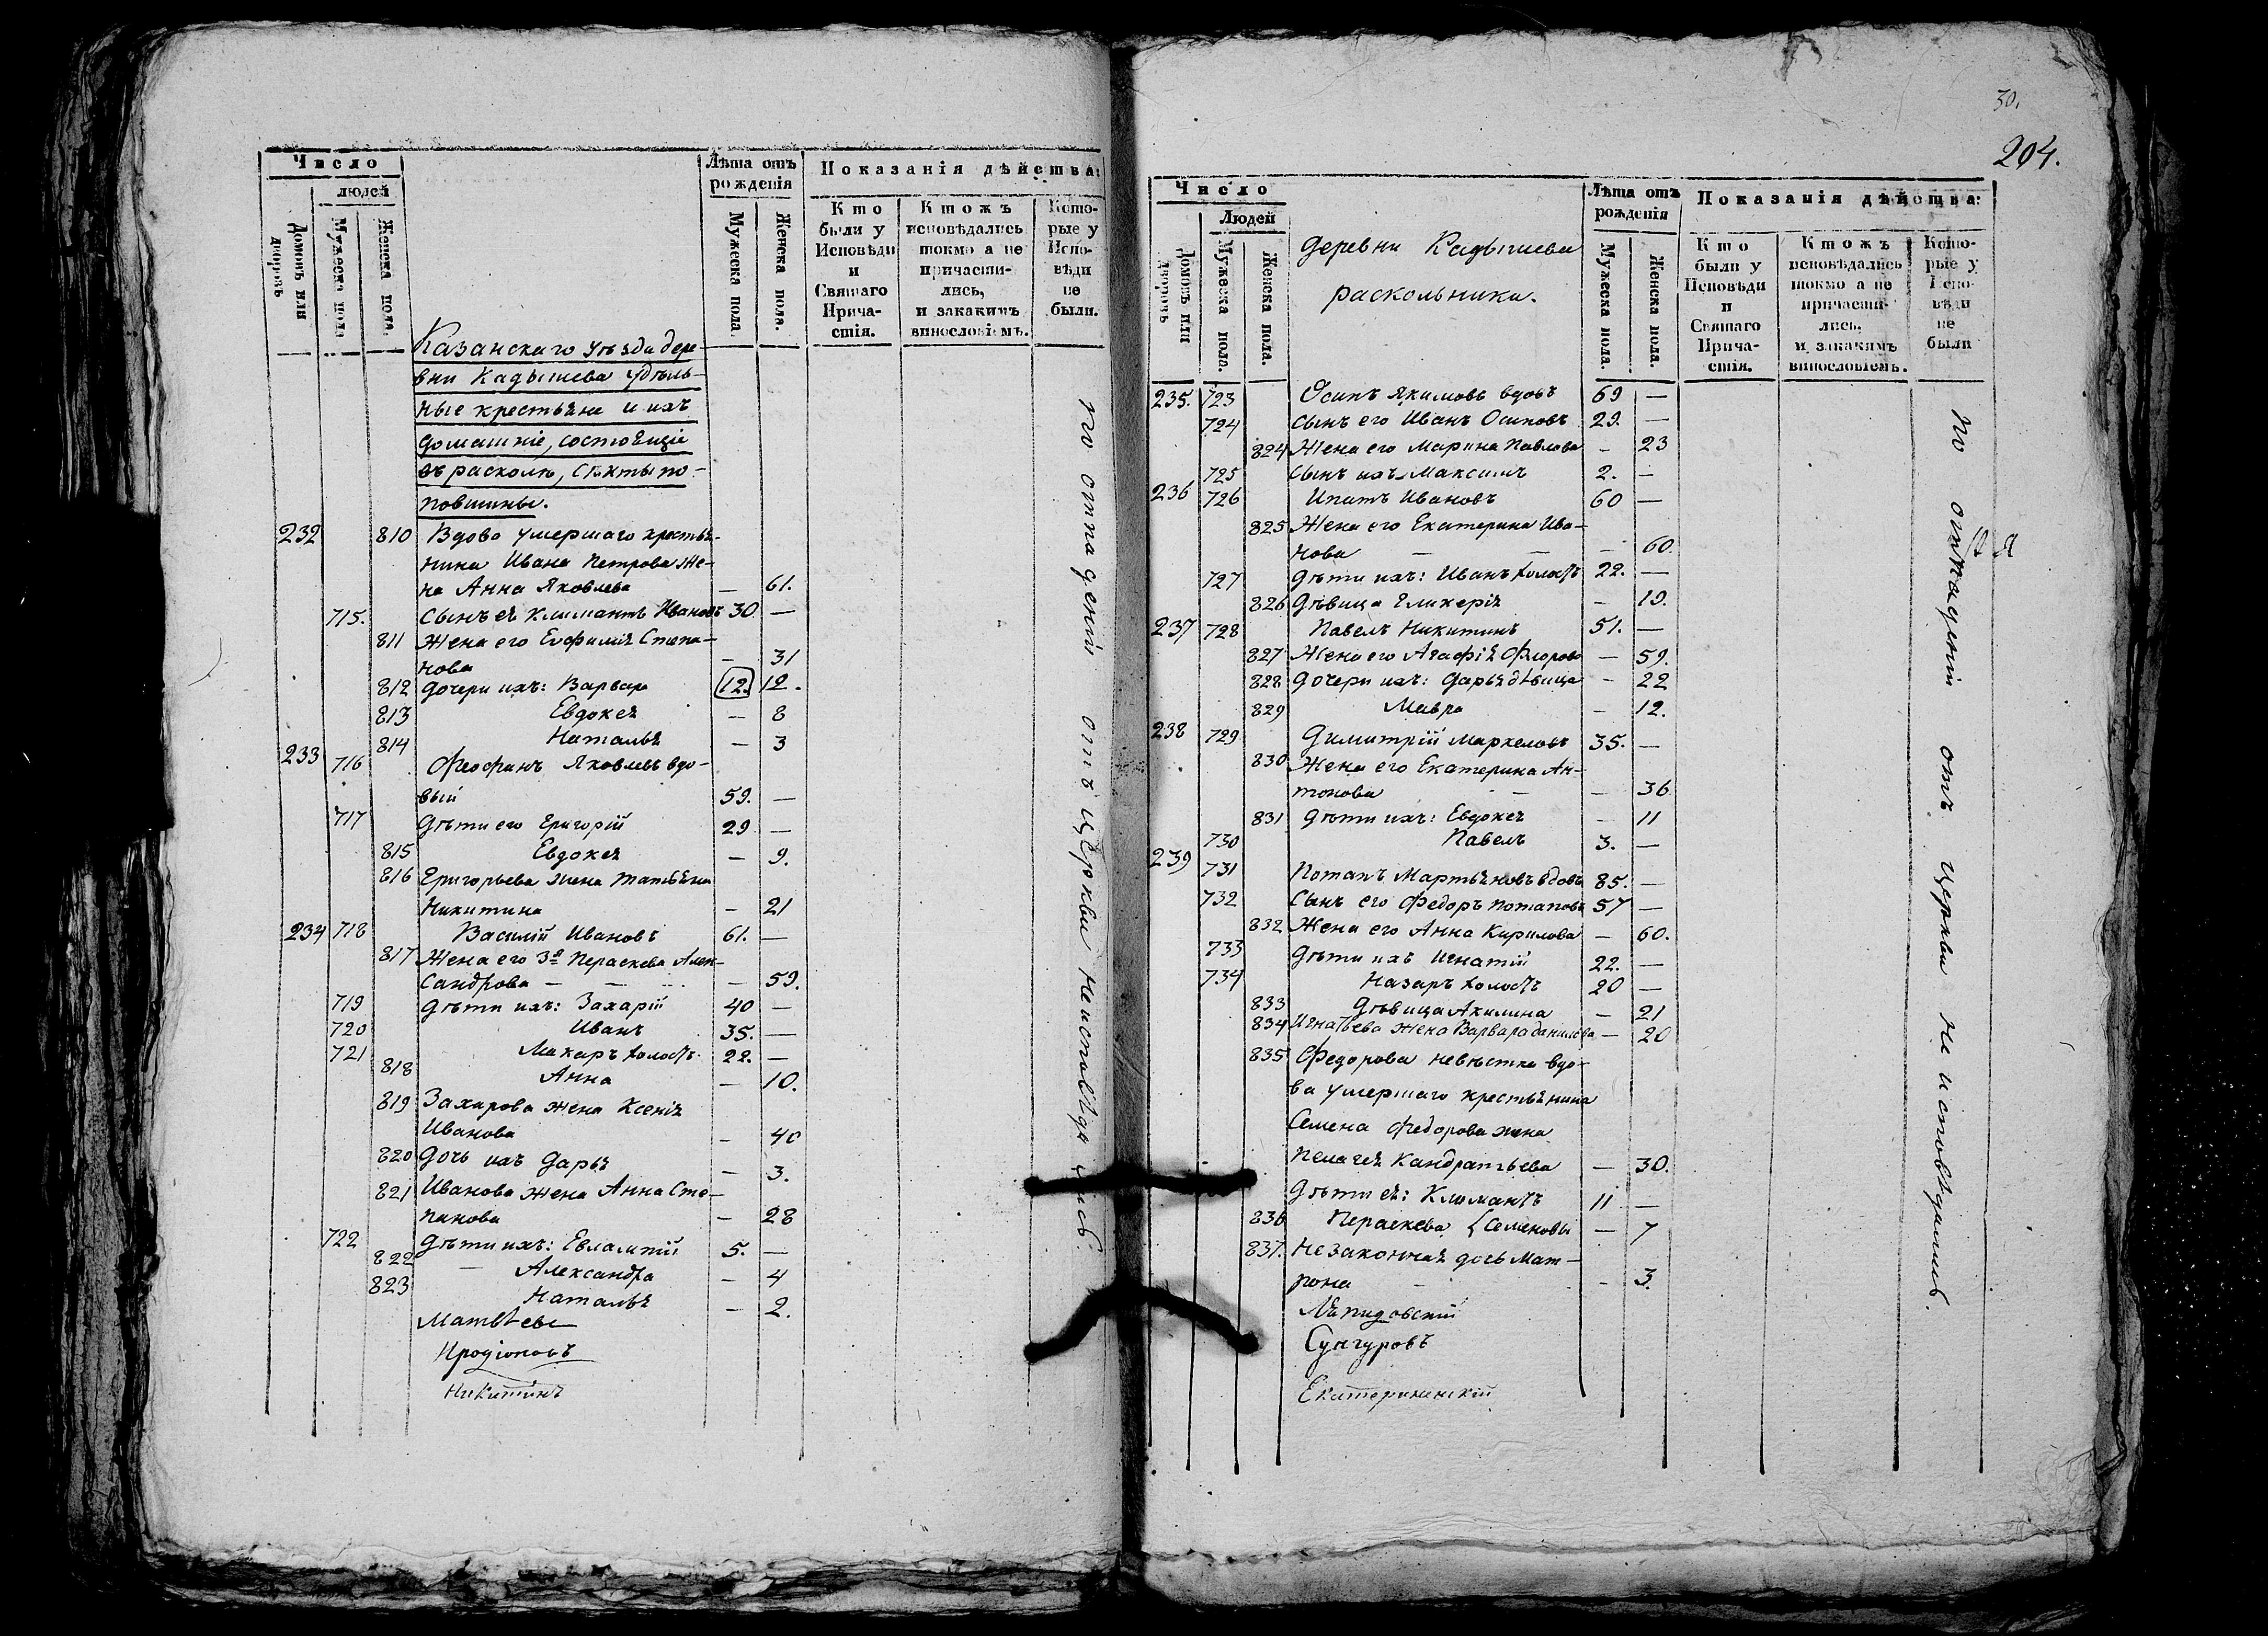 Число
людей
Домовъ или дворовъ
Мужеска пола
Женска пола.
Лѣта отъ рожденія
Мужеска пола.
Женска пола.
Показанія дѣйства:
Кто были у Исповѣди и Святаго Прича-стія.
Ктожъ исповѣдались токмо а не причасти-лись, и закакимъ винословіемъ.
Кото-рые у Испо-вѣди не были.
Казанскаго уѣзда дере-
вни Кадышева удѣль-
ные крестьяне и ихъ
домашніе, состоящіе
въ расколѣ, секты по-
повщины.
232 810 Вдова умершаго крестья-
нина Ивана Петрова же-
на Анна Яковлева — 61.
715. Сынъ ея Климантъ Ивановъ 30 —
811 Жена его Евфимія Степа-
нова — 31
812 Дочери ихъ: Варвара 12. 12.
813 Евдокея — 8
814 Наталья — 3
233 716 Феофанъ Яковлевъ вдо-
вый 59. —
717 Дѣти его Григорій 29 —
815 Евдокея — 9.
816 Григорьева жена Татьяна
Никитина — 21
234 718 Василій Ивановъ 61. —
817 Жена его 3я Пераскева Алек-
сандрова — — — 59.
719 Дѣти ихъ: Захарій 40 —
720 Иванъ 35. —
721 Макаръ холостъ 22. —
818 Анна — 10.
819 Захарова жена Ксенія
Иванова — 40
820 Дочь ихъ Дарья — 3.
821 Иванова жена Анна Сте-
панова — 28
722 Дѣти ихъ: Евлампій 5. —
822 — Александра — 4
823 Наталья — 2.
Матвѣевъ
Иродіоновъ
Никитинъ
по отпаденіи отъ церкви неисповѣдались
30.
204.
Число
Людей
Домовъ или дворовъ
Мужеска пола.
Женска пола.
деревни Кадышева
раскольники.
Лѣта отъ рожденія
Мужеска пола.
Женска пола.
Показанія дѣйства:
Кто были у Исповѣди и Святаго Прича-стія.
Ктожъ исповѣдались токмо а не причасти-лись, и закакимъ винословіемъ.
Кото-рые у Испо-вѣди не были
235. 723 Осипъ Якимовъ вдовъ 69 —
724 Сынъ его Иванъ Осиповъ 29. —
824 Жена его Марина Павлова — 23
725 Сынъ ихъ Максимъ 2. —
236 726 Ипатъ Ивановъ 60 —
825 Жена его Екатерина Ива-
нова — — — 60.
727 Дѣти ихъ: Иванъ холостъ 22. —
826 Дѣвица Гликерія — 19.
237 728 Павелъ Никитинъ 51. —
827 Жена его Агафія Флорова — 59.
828 Дочери ихъ: Дарья дѣвица — 22
829 Мавра — 12.
238 729 Димитрій Маркеловъ 35. —
830 Жена его Екатерина Ан-
тонова — — 36
831 Дѣти ихъ: Евдокея — 11
730 Павелъ 3. —
239 731 Потапъ Мартьяновъ вдовъ 85. —
732 Сынъ его Федоръ Потаповъ 57 —
832 Жена его Анна Кирилова — 60.
733 Дѣти ихъ Игнатій 22. —
734 Назаръ холостъ 20 —
833 Дѣвица Акилина — 21
834 Игнатьева жена Варвара Данилова — 20
835 Федорова невѣстка вдо-
ва умершаго крестьянина
Семена Федорова жена
Пелагея Кандратьева — 30.
Дѣти ея: Климантъ 11 —
836 Пераскева { Семеновы — 7
837. Незаконная дочь Мат-
рона — — 3.
Лапидовскій
Сунгуровъ
Екатерининскій
по отпаденіи отъ церкви не исповѣдались.